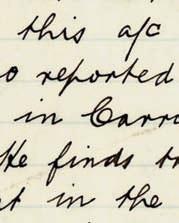 this a/c
o reported
in Carro
He finds t
t in the